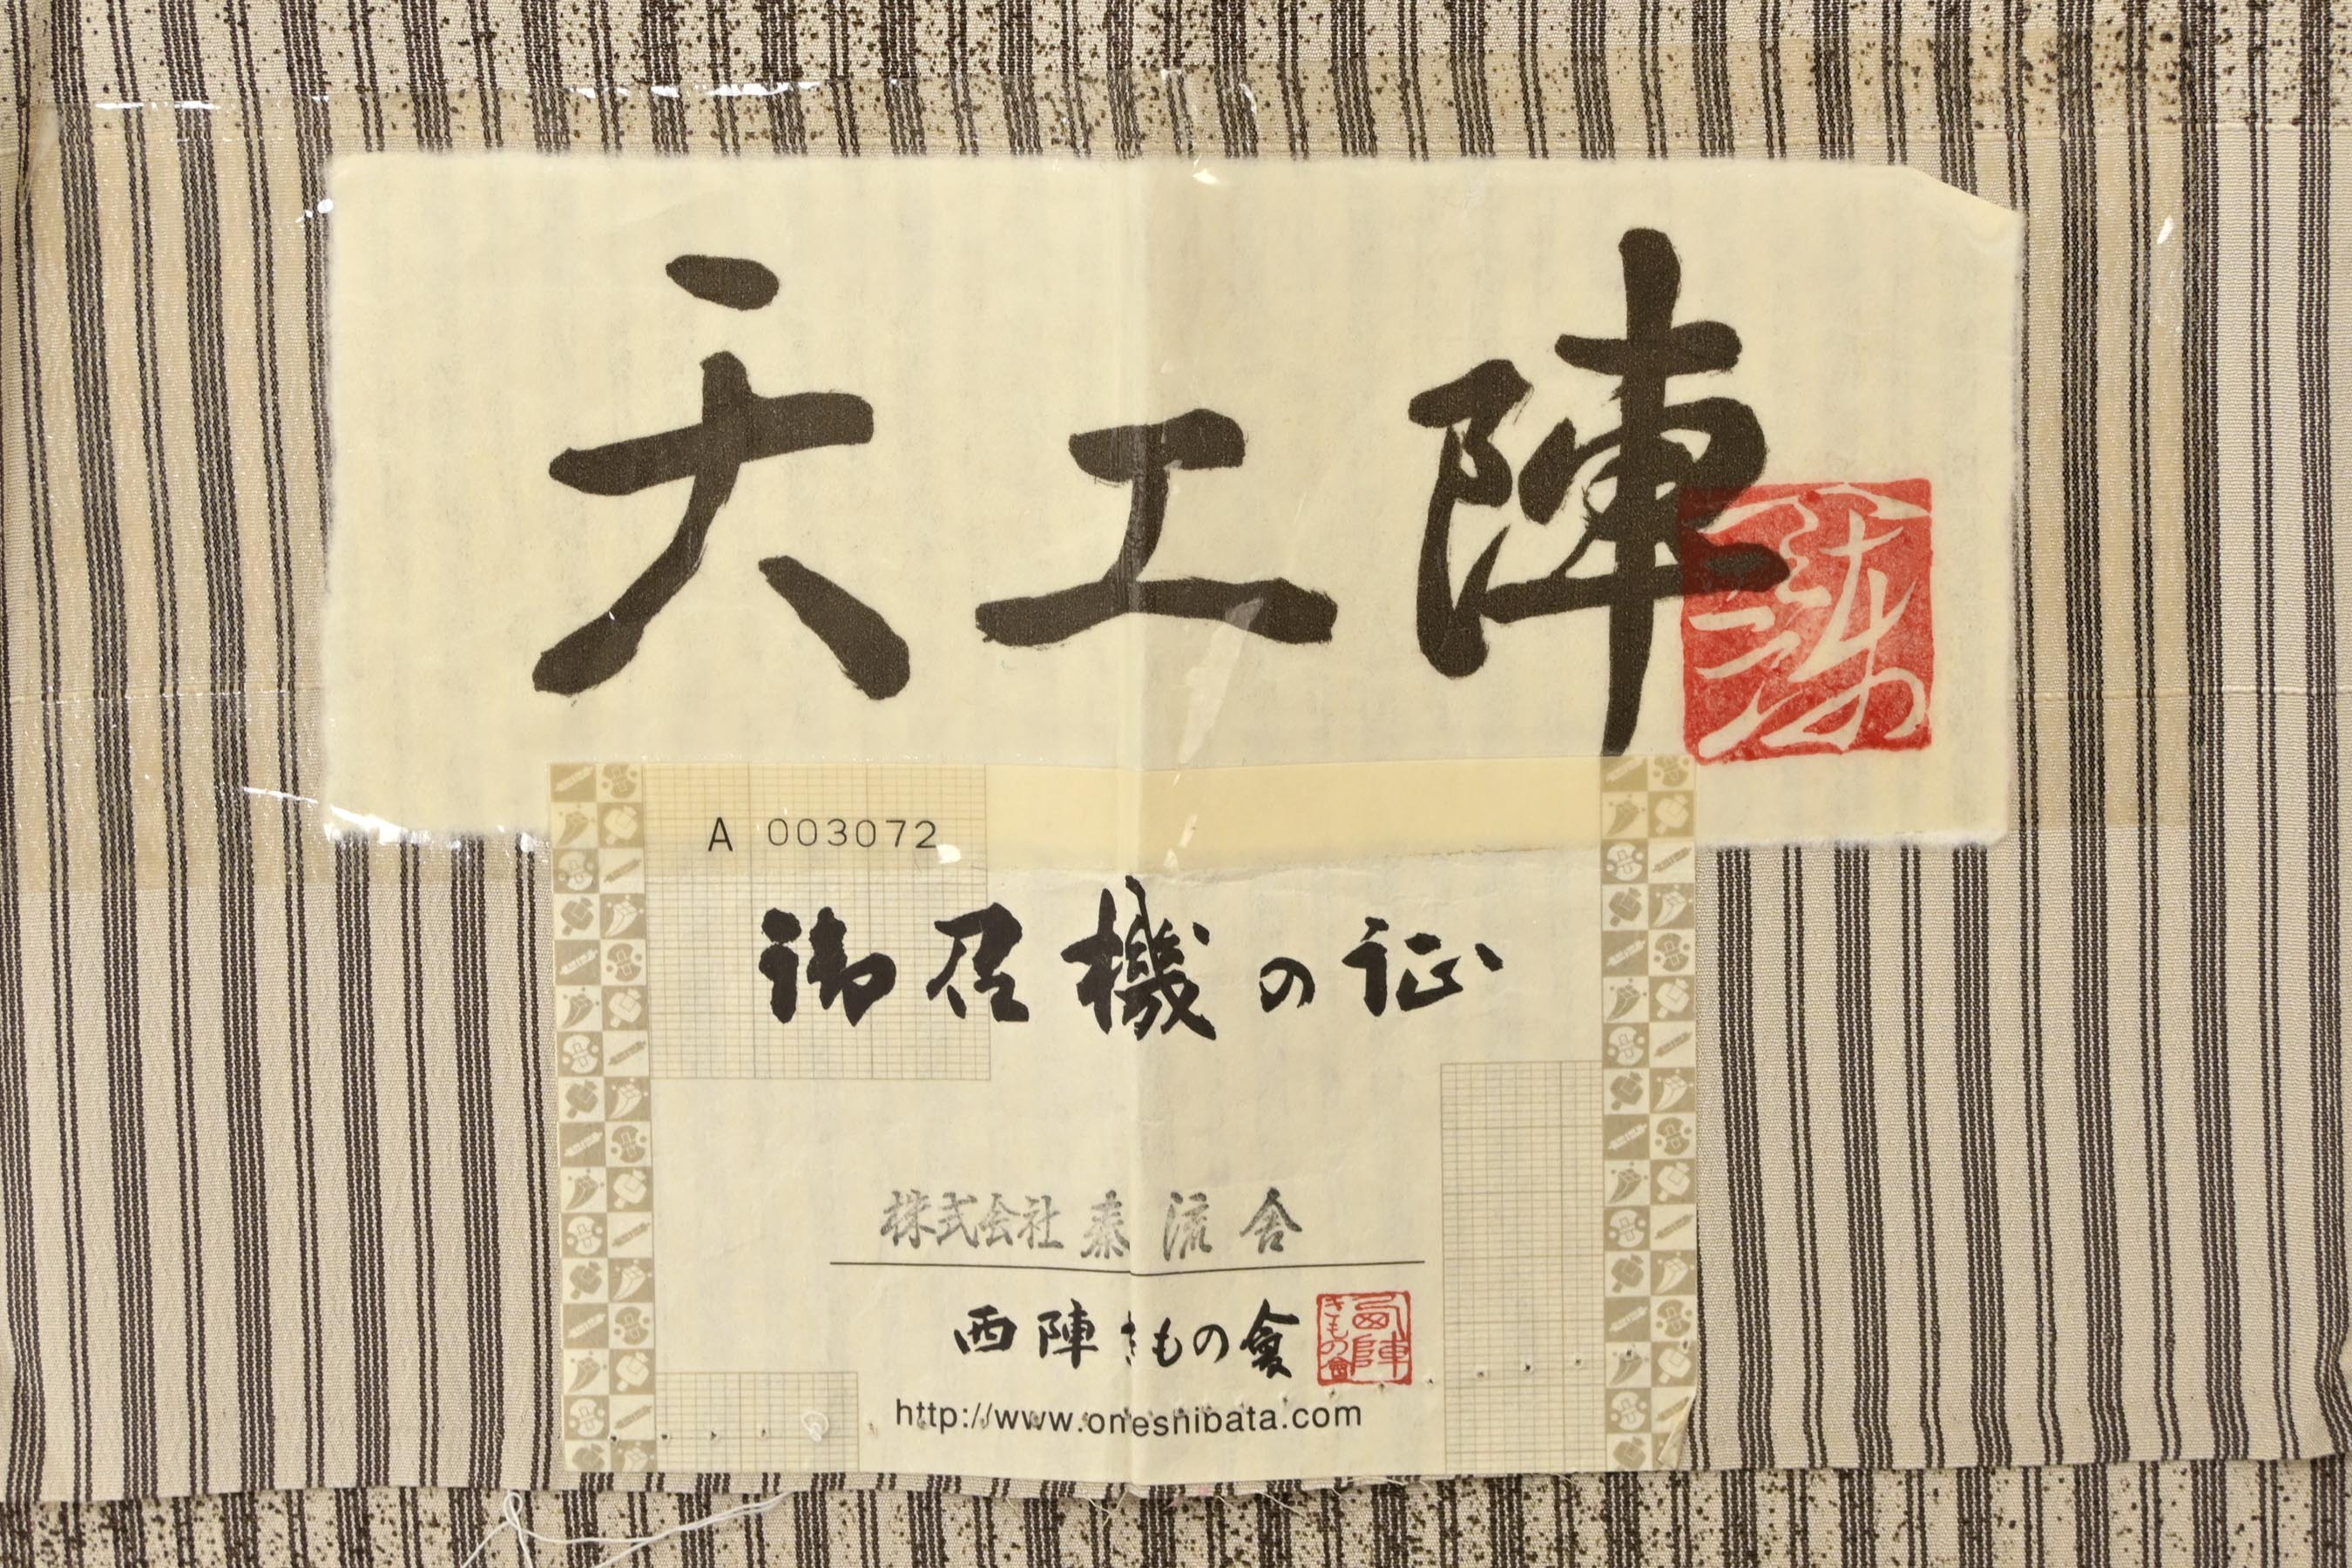 天工陣
A 003072
御召機の証
株式会社 秦流舎
西陣きもの會
西陣きもの會
http://www.oneshibata.com